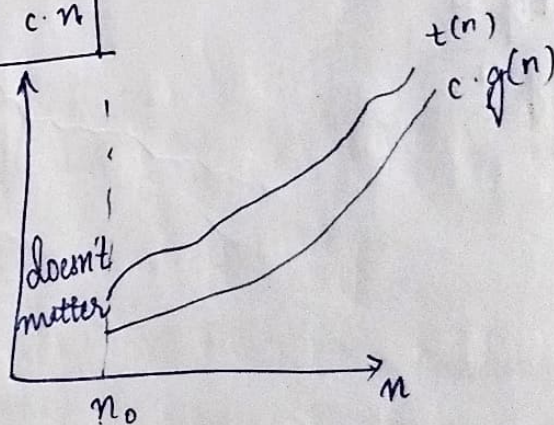 c·n
t(n)
c·g(n)
doesn't
matter
n
n₀